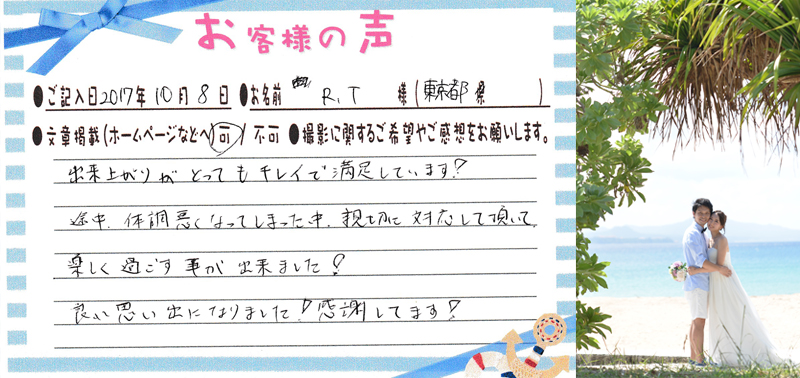 お客様の声
●ご記入日2017年10月8日 ●お名前 R.T 様(東京都 )
●文章掲載(ホームページなどへ 可 / 不可 ●撮影に関するご希望やご感想をお願いします。
出来上がりがとってもキレイで満足しています!
途中、体調悪くなってしまった中、親切に対応して頂いて、
楽しく過ごす事が出来ました!
良い思い出になりました!感謝してます!